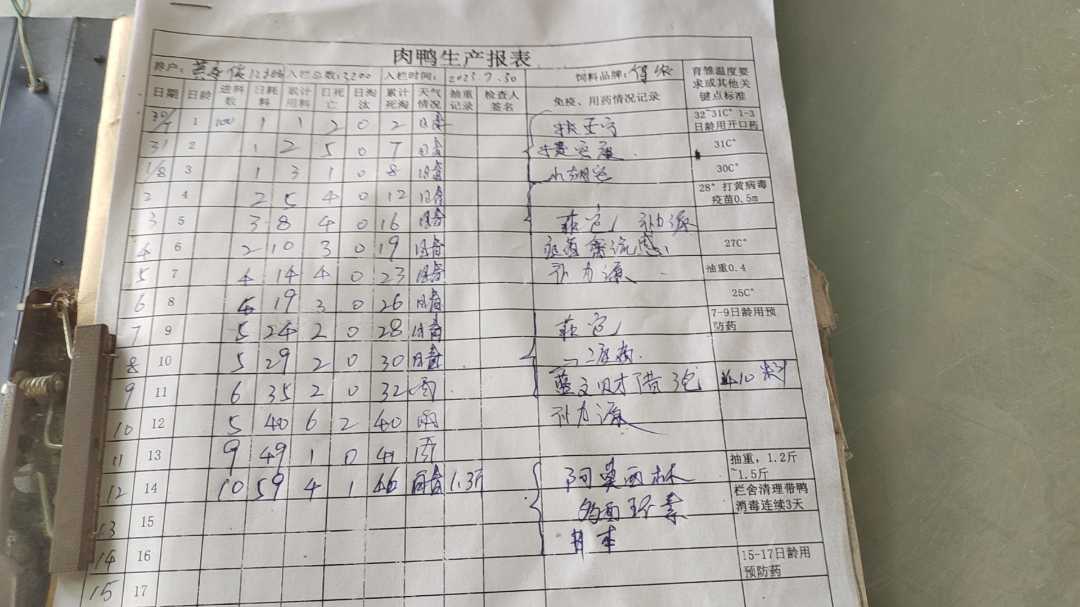 肉鸭生产报表
养户: 入栏总数:3200 入栏时间: 2023.7.30 饲料品牌: 育雏温度要求或其他关键点标准
日期 日龄 进料数 日耗料 累计用料 日死亡 日淘汰 累计死淘 天气情况 抽重记录 检查人签名 免疫、用药情况记录
30/7 1 100 1 1 2 0 2 阴 32°31C° 1-3日龄用开口药
31 2 1 2 5 0 7 31C°
1/8 3 1 3 1 0 8 30C°
2 4 2 5 4 0 12 28° 打黄病毒疫苗0.5m
3 5 3 8 4 0 16 补力源
4 6 2 10 3 0 19 禽流感 27C°
5 7 4 14 4 0 23 补力源 抽重0.4
6 8 5 19 3 0 26 25C°
7 9 5 24 2 0 28 7-9日龄用预防药
8 10 5 29 2 0 30
9 11 6 35 2 0 32 雨
10 12 5 40 6 2 40 雨 补力源
11 13 9 49 1 0 41 雨 抽重，1.2斤~1.5斤
12 14 10 59 4 1 46 1.3斤 阿莫西林 栏舍清理带鸭消毒连续3天
13 15 多西环素
14 16 15-17日龄用预防药
15 17